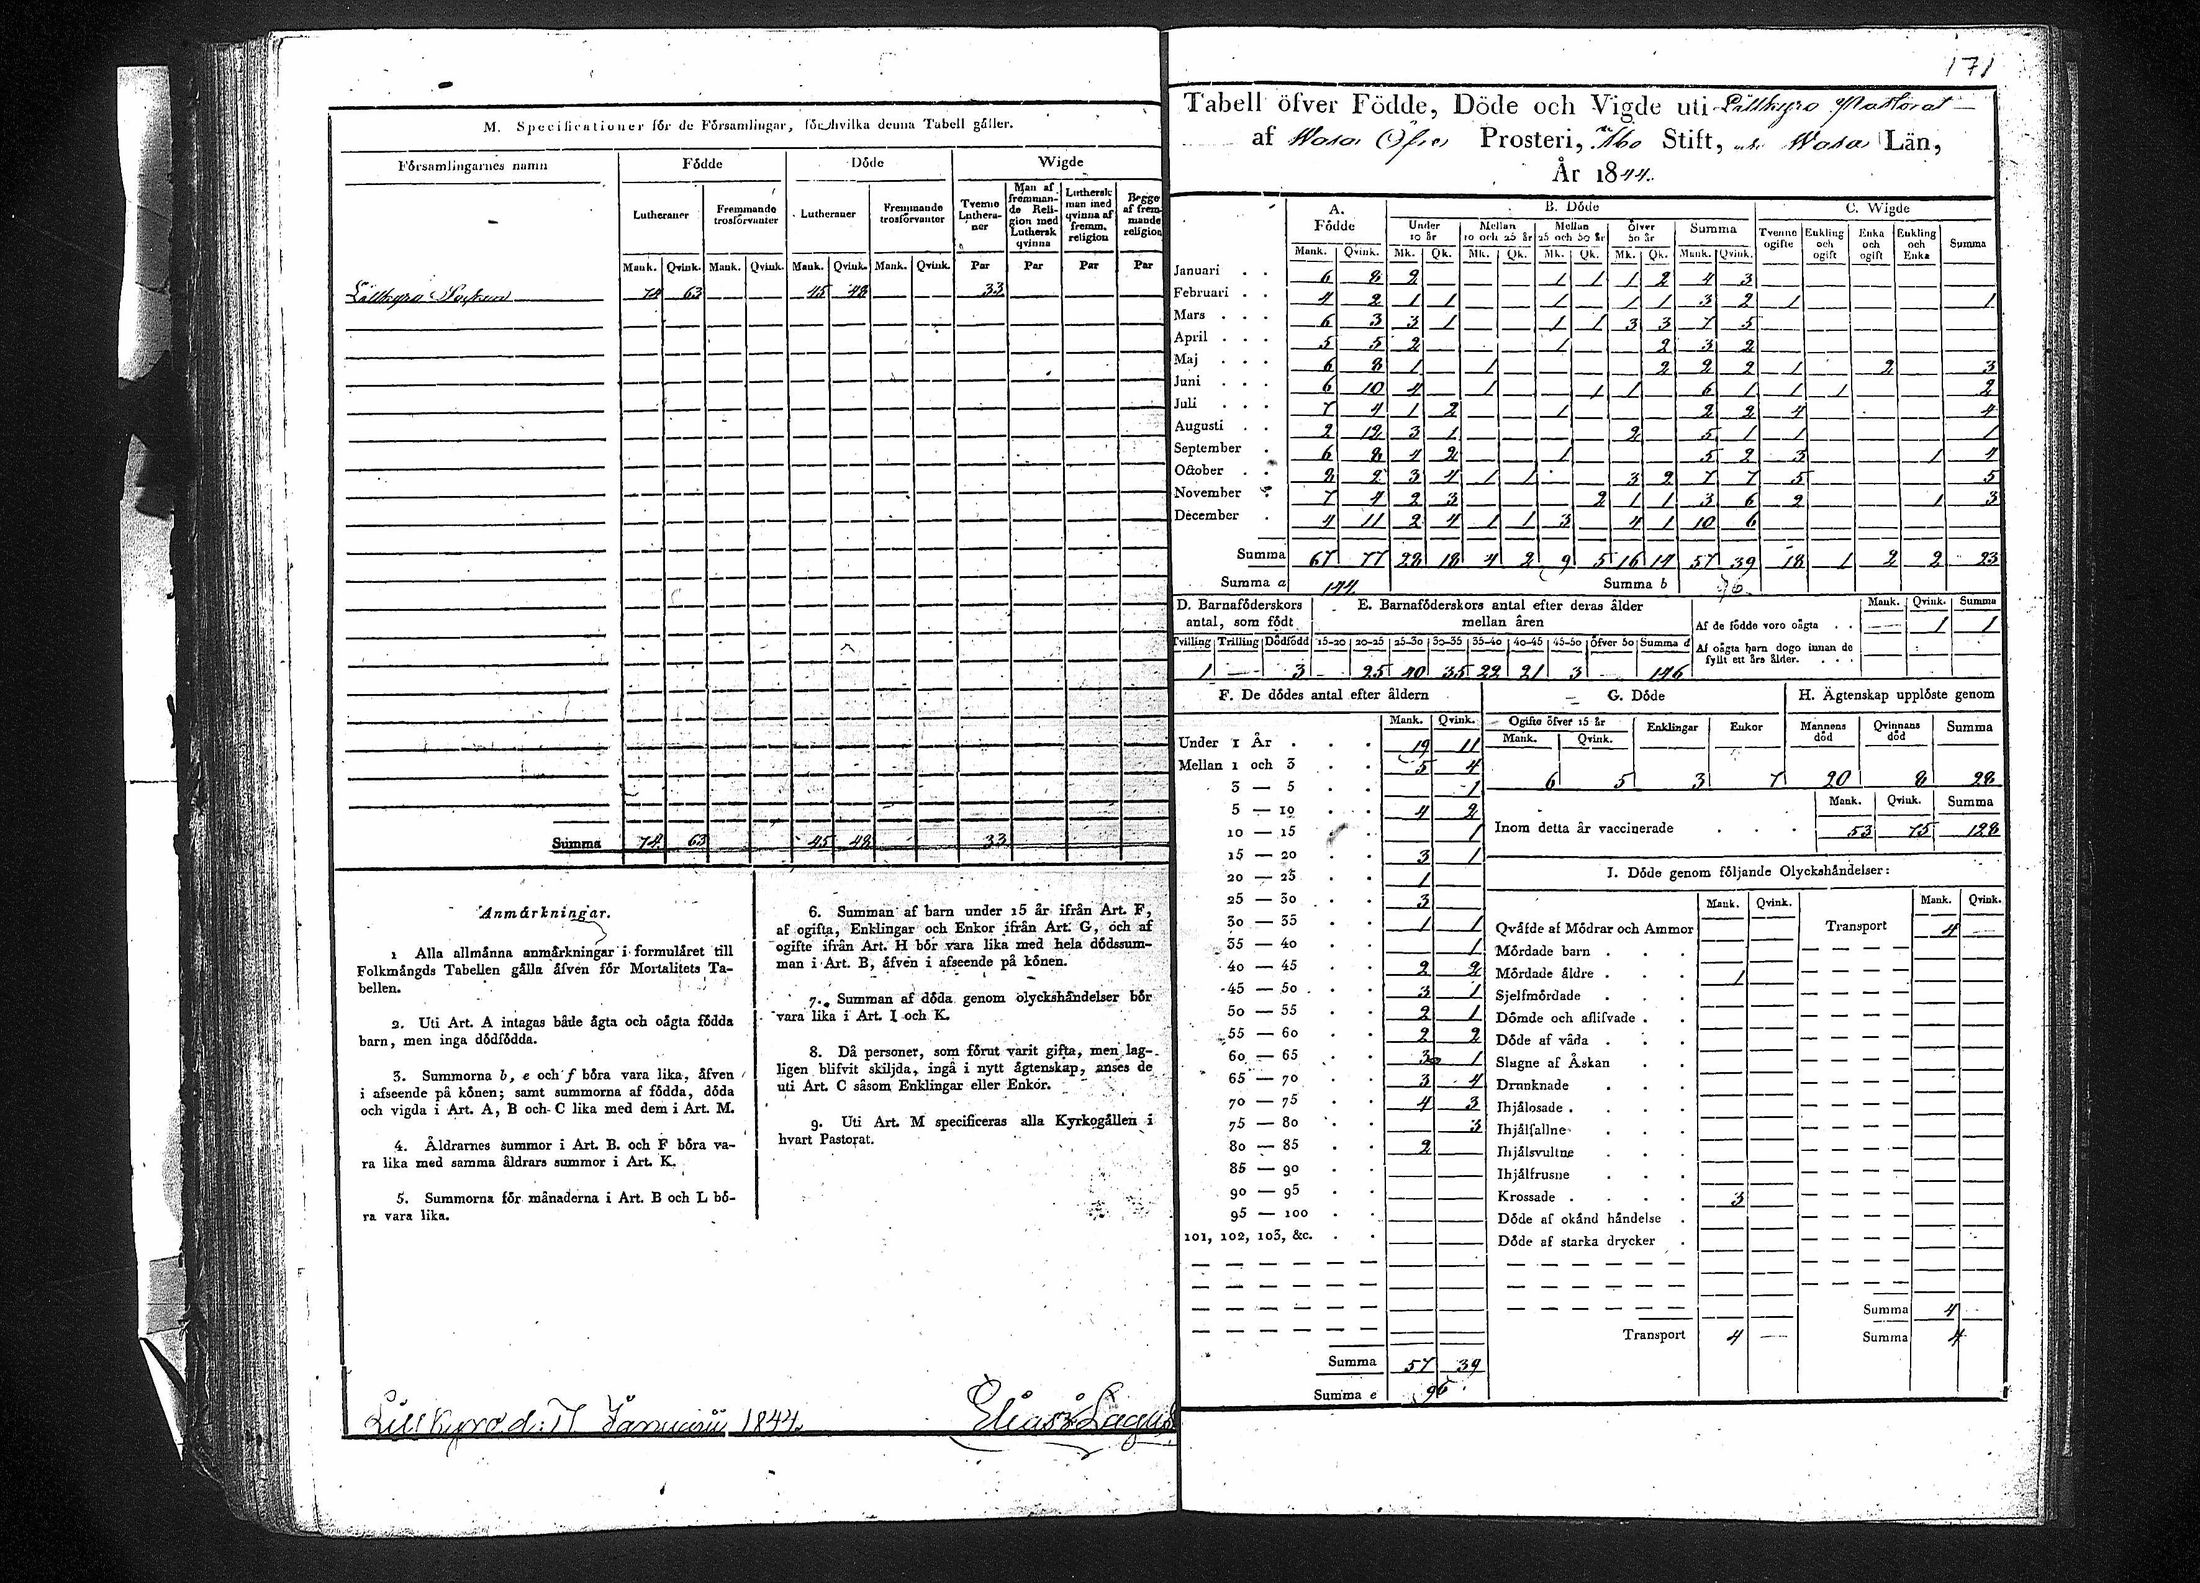 M. Specificationer för de Församlingar, för hvilka denna Tabell gäller.
Församlingarnes namn | Födde | Döde | Wigde
Lutheraner | Fremmande trosförvanter | Lutheraner | Fremmande trosförvanter | Tvenne Lutheraner | Man af fremmande Religion med Luthersk qvinna | Luthersk man med qvinna af fremm. religion | Begge af fremmande religion
Mank. | Qvink. | Mank. | Qvink. | Mank. | Qvink. | Mank. | Qvink. | Par | Par | Par | Par
Lillkyro Socken | 74 | 63 | 45 | 48 | 33
Summa | 74 | 63 | 45 | 48 | 33
Anmärkningar.
1 Alla allmänna anmärkningar i formuläret till
Folkmängds Tabellen gälla äfven för Mortalitets Ta-
bellen.
2. Uti Art. A intagas både ägta och oägta födda
barn, men inga dödfödda.
3. Summorna b, e och f böra vara lika, äfven
i afseende på könen; samt summorna af födda, döda
och vigda i Art. A, B och C lika med dem i Art. M.
4. Åldrarnes summor i Art. B. och F böra va-
ra lika med samma åldrars summor i Art. K.
5. Summorna för månaderna i Art. B och L bö-
ra vara lika.
6. Summan af barn under 15 år ifrån Art. F,
af ogifta, Enklingar och Enkor ifrån Art. G, och af
ogifte ifrån Art. H bör vara lika med hela dödssum-
man i Art. B, äfven i afseende på könen.
7. Summan af döda genom olyckshändelser bör
vara lika i Art. I och K.
8. Då personer, som förut varit gifta, men lag-
ligen blifvit skiljda, ingå i nytt ägtenskap, anses de
uti Art. C såsom Enklingar eller Enkor.
9. Uti Art. M specificeras alla Kyrkogällen i
hvart Pastorat.
Lillkyro d: 17 Januarii 1844. Elias Lagus
171
Tabell öfver Födde, Döde och Vigde uti Lillkyro Pastorat
af Wasa Öfre Prosteri, Åbo Stift, och Wasa Län,
År 1844.
A. Födde | B. Döde | C. Wigde
Under 10 år | Mellan 10 och 25 år | Mellan 25 och 50 år | Öfver 50 år | Summa | Tvenne ogifte | Enkling och ogift | Enka och ogift | Enkling och Enka | Summa
Mank. | Qvink. | Mk. | Qk. | Mk. | Qk. | Mk. | Qk. | Mk. | Qk. | Mank. | Qvink.
Januari | 6 | 8 | 2 | 1 | 1 | 1 | 2 | 4 | 3
Februari | 4 | 2 | 1 | 1 | 1 | 1 | 1 | 3 | 2 | 1 | 1
Mars | 6 | 3 | 3 | 1 | 1 | 1 | 3 | 3 | 7 | 5
April | 5 | 5 | 2 | 1 | 2 | 3 | 2
Maj | 6 | 8 | 1 | 1 | 2 | 2 | 2 | 1 | 2 | 3
Juni | 6 | 10 | 4 | 1 | 1 | 1 | 6 | 1 | 1 | 1 | 2
Juli | 7 | 4 | 1 | 2 | 1 | 2 | 2 | 4 | 4
Augusti | 2 | 12 | 3 | 1 | 2 | 5 | 1 | 1 | 1
September | 6 | 8 | 4 | 2 | 1 | 5 | 2 | 3 | 1 | 4
October | 8 | 2 | 3 | 4 | 1 | 1 | 3 | 2 | 7 | 7 | 5 | 5
November | 7 | 4 | 2 | 3 | 2 | 1 | 1 | 3 | 6 | 2 | 1 | 3
December | 4 | 11 | 2 | 4 | 1 | 1 | 3 | 4 | 1 | 10 | 6
Summa | 67 | 77 | 28 | 18 | 4 | 2 | 9 | 5 | 16 | 14 | 57 | 39 | 18 | 1 | 2 | 2 | 23
Summa a | 144 | Summa b | 96
D. Barnaföderskors antal, som födt | E. Barnaföderskors antal efter deras ålder mellan åren | Mank. | Qvink. | Summa
Tvilling | Trilling | Dödfödd | 15-20 | 20-25 | 25-30 | 30-35 | 35-40 | 40-45 | 45-50 | Öfver 50 | Summa d
1 | — | 3 | - | 25 | 40 | 35 | 22 | 21 | 3 | 146
Af de födde voro oägta | — | 1 | 1
Af oägta barn dogo innan de fyllt ett års ålder.
F. De dödes antal efter åldern
Mank. | Qvink.
Under 1 År | 19 | 11
Mellan 1 och 3 | 5 | 4
3 — 5 | 1
5 — 10 | 4 | 2
10 — 15 | 1
15 — 20 | 3 | 1
20 — 25 | 1
25 — 30 | 3
30 — 35 | 1 | 1
35 — 40 | 1
40 — 45 | 2 | 2
45 — 50 | 3 | 1
50 — 55 | 2 | 1
55 — 60 | 2 | 2
60 — 65 | 3 | 1
65 — 70 | 3 | 4
70 — 75 | 4 | 3
75 — 80 | 3
80 — 85 | 2
85 — 90
90 — 95
95 — 100
101, 102, 103, &c.
Summa | 57 | 39
Summa e | 96
G. Döde | H. Ägtenskap upplöste genom
Ogifte öfver 15 år | Enklingar | Enkor | Mannens död | Qvinnans död | Summa
Mank. | Qvink.
6 | 5 | 3 | 7 | 20 | 8 | 28
Mank. | Qvink. | Summa
Inom detta år vaccinerade | 53 | 75 | 128
I. Döde genom följande Olyckshändelser:
Mank. | Qvink. | Mank. | Qvink.
Qväfde af Mödrar och Ammor | Transport | 4
Mördade barn
Mördade äldre | 1
Sjelfmördade
Dömde och aflifvade
Döde af våda
Slagne af Åskan
Drunknade
Ihjälosade
Ihjälfallne
Ihjälsvultne
Ihjälfrusne
Krossade | 3
Döde af okänd händelse
Döde af starka drycker
Summa | 4
Transport | 4 | — | Summa | 4